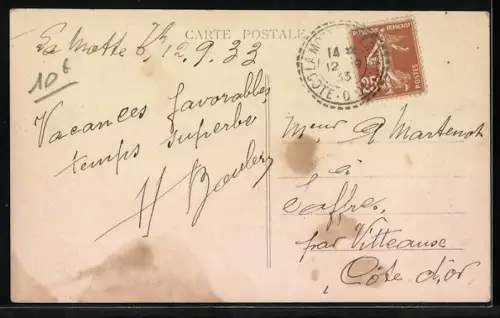 CARTE POSTALE
La Motte Th, 12.9.33
10 6
Vacances favorables
temps superbe
H Bouley
LA M
14
12 9
33
COTE-D'O
REPUBLIQUE FRANÇAISE
25
POSTES
Mr A Martenot
à
Saffres
par Vitteaux
Côte d'or